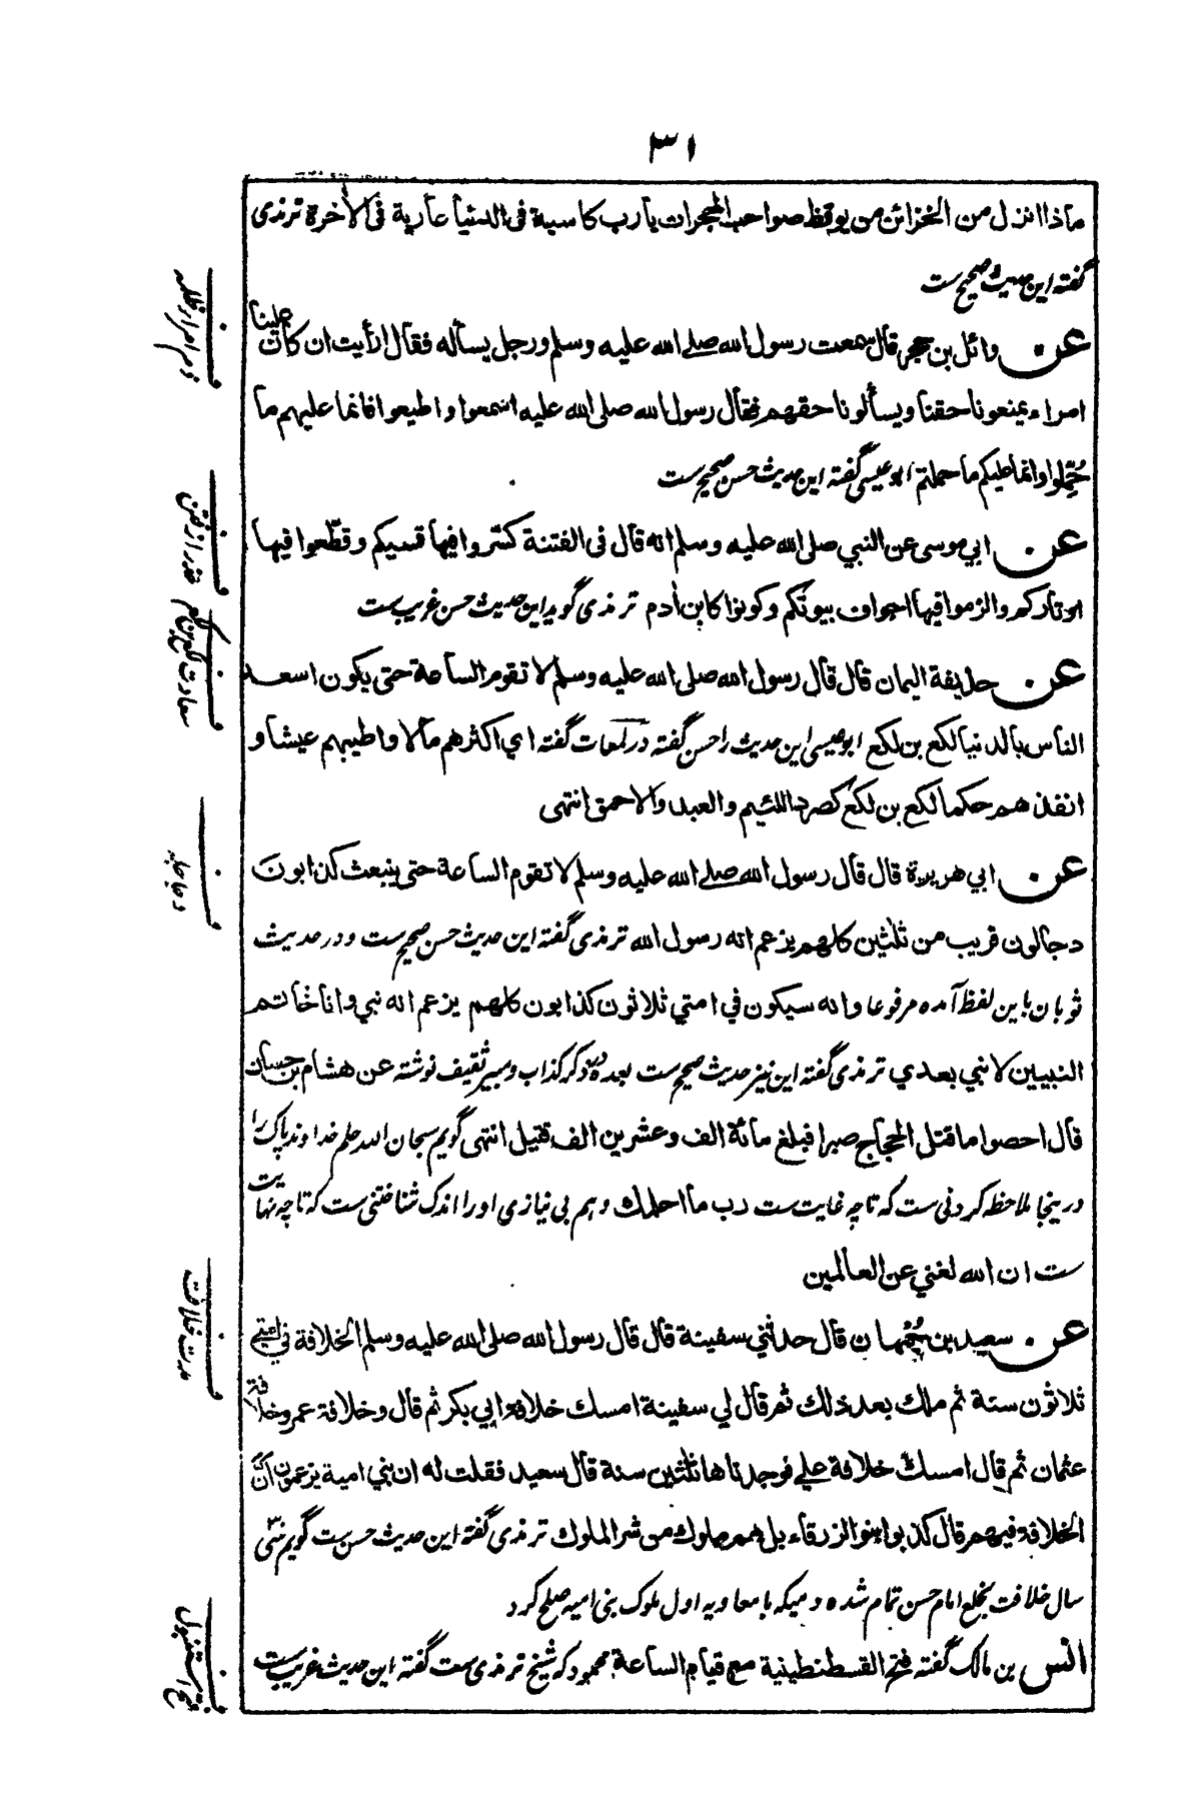 ٣١
ماذا انزل من الخزائن من يوقظ صواحب الحجرات يا رب كاسية فى الدنيا عارية فى الاخرة ترمذى
گفته اين حديث صحيح ست
عن وائل بن حجر قال سمعت رسول الله صلے الله عليه وسلم ورجل يسأله فقال ارأيت ان كان علينا
امراء يمنعونا حقنا ويسألونا حقهم فقال رسول الله صلى الله عليه اسمعوا واطيعوا فانما عليهم ما
حُمِّلوا وانما عليكم ما حملتم ابو عيسى گفته اين حديث حسن صحيح ست
عن ابي موسى عن النبي صلى الله عليه وسلم انه قال فى الفتنة كسّروا فيها قسيكم وقطّعوا فيها
اوتاركم والزموا فيها اجواف بيوتكم وكونوا كابن أدم ترمذى گويد اين حديث حسن غريب ست
عن حذيفة اليمان قال قال رسول الله صلى الله عليه وسلم لا تقوم الساعة حتى يكون اسعد
الناس بالدنيا لكع بن لكع ابو عيسى اين حديث را حسن گفته در لمعات گفته اي اكثرهم مالا واطيبهم عيشا و
انفذهم حكما لكع بن لكع كصرد اللئيم والعبد والاحمق انتهى
عن ابي هريرة قال قال رسول الله صلے الله عليه وسلم لا تقوم الساعة حتى ينبعث كذابون
دجالون قريب من ثلثين كلهم يزعم انه رسول الله ترمذى گفته اين حديث حسن صحيح ست ودر حديث
ثوبان باين لفظ آمده مرفوعا وانه سيكون في امتي ثلاثون كذابون كلهم يزعم انه نبي وانا خاتم
النبيين لا نبي بعدي ترمذى گفته اين نيز حديث صحيح ست بعده ذكر كذاب ومبير ثقيف نوشته عن هشام بن حسان
قال احصوا ما قتل الحجاج صبرا فبلغ مائة الف وعشرين الف قتيل انتهى گويم سبحان الله حلم خداوند پاك را
درينجا ملاحظه كردنى ست كه تا چه غايت ست رب ما احلمك وهم بى نيازى او را اندك شناختنى ست كه تا چه نهايت
ست ان الله لغني عن العالمين
عن سعيد بن جُمْهان قال حدثني سفينة قال قال رسول الله صلى الله عليه وسلم الخلافة في امتي
ثلاثون سنة ثم ملك بعد ذلك ثم قال لي سفينة امسك خلافة ابي بكر ثم قال وخلافة عمر وخلافة
عثمان ثم قال امسك خلافة علے فوجدناها ثلثين سنة قال سعيد فقلت له ان بني امية يزعمون انّ
الخلافة فيهم قال كذبوا بنوا الزرقاء بل هم ملوك من شر الملوك ترمذى گفته اين حديث حسن ست گويم سى
سال خلافت بخلع امام حسن تمام شده دميكه با معاويه اول ملوك بنى اميه صلح كرد
انس بن مالك گفته فتح القسطنطينية مع قيام الساعة محمود كه شيخ ترمذى ست گفته اين حديث غريب ست
ف
لزوم امراء ظلمه
ف
حذر از فتن
ف
سعادت لكع بن لكع
ف
دجاجله
ف
مدت خلافت
ف
فتح استنبول